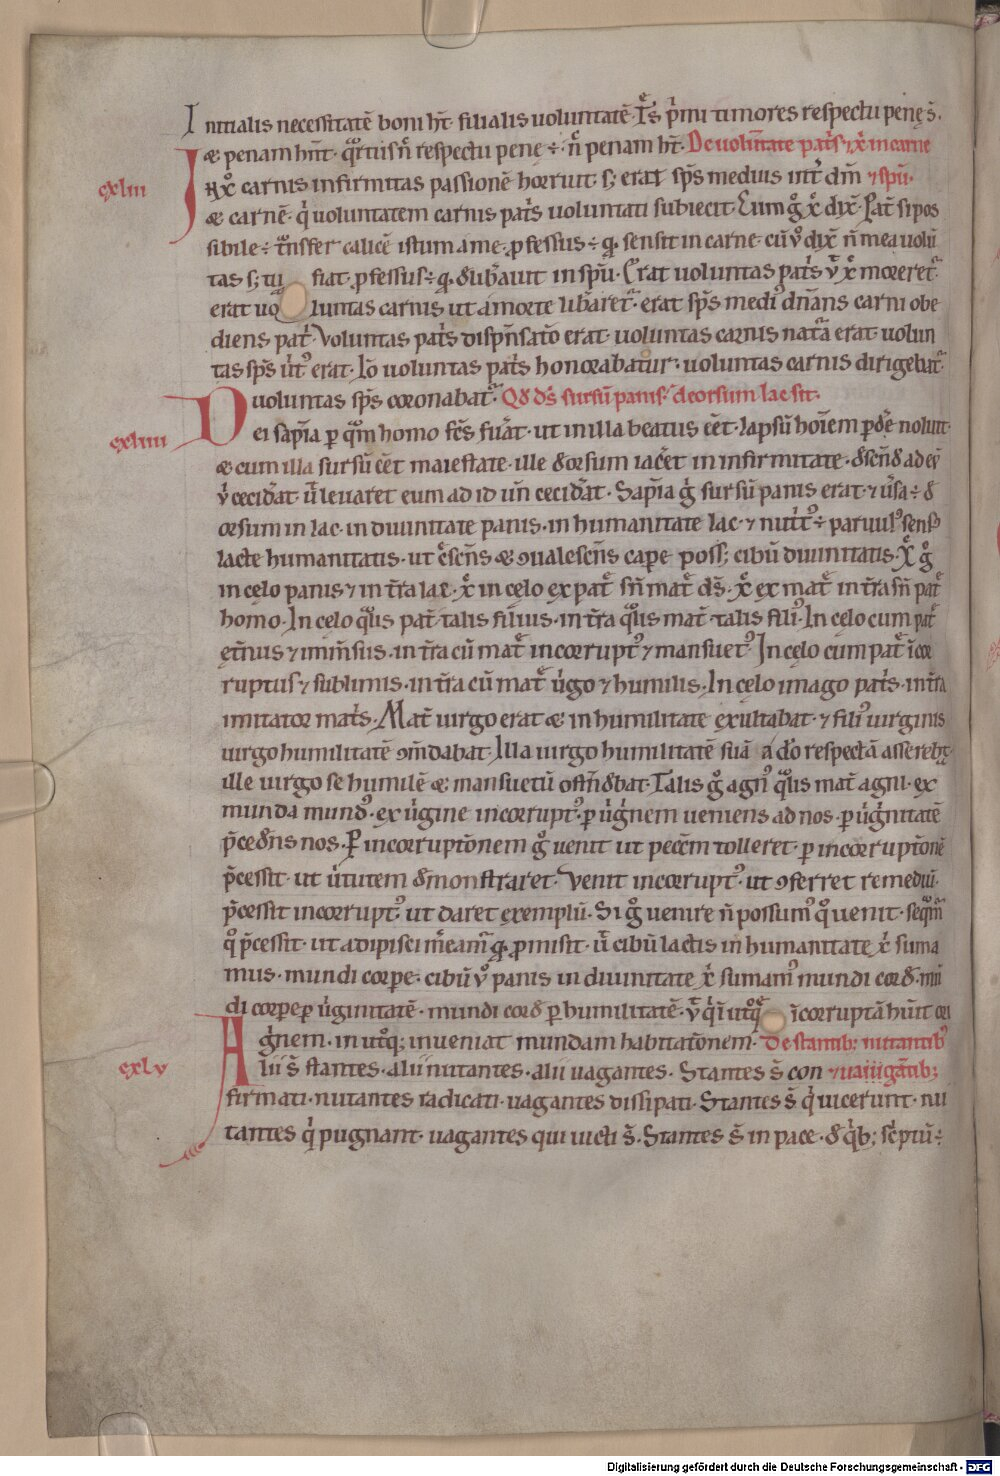 Initialis necessitatē boni hr̄t. filialis uoluntatē. Tͤs p̄mi timores respectu penę s̄.
& penam hn̄t. qͣrtus n̄ respectu penę ÷. n̄ penam hr̄t. De uolūtate patͥs & xp̄i in carne
cxliii In xp̄o carnis infirmitas passionē horruit. s; erat sp̄s medius int̄ dm̄ & sp̄m.
& carnē. q̇ uoluntatem carnis patͥs uoluntati subiecit. Cum gͦ xp̄c dix̄. Pat̄ si pos
sibile ÷ t̄nsfer calicē istum a me. professus ÷ qd̄ sensit in carne. cū ū dix̄ n̄ mea uolū
tas s; tua fiat. professus ÷ qd̄ delib̄auit in sp̄u. Erat uoluntas patͥs ut xp̄c moreret᷑.
erat uo luntas carnis ut a morte lib̄aret᷑. erat sp̄s mediꝰ dn̄ans carni obe
diens patͥ. Voluntas patͥs disp̄nsatͦ erat. uoluntas carnis nat̄a erat. uolun
tas sp̄s ūtꝰ erat. Iō uoluntas patͥs honorabatur. uoluntas carnis dirigebat᷑.
uoluntas sp̄s coronabat᷑. Qd̄ ds̄ sursū panis. deorsum lac sit.
cxliiii Dei sapīa p quͣm homo fcs̄ fuāt. ut in illa beatus eēt. lapsū hoīem pdͤe noluit.
& cum illa sursū eēt maiestate. ille deorsum iacēt in infirmitate. descēd ad eū
ū cecid̄at. ut̄ leuaret eum ad id un̄ cecid̄at. Sapīa ḡ sursū panis erat. & ūsa ÷ de
orsum in lac. in diuinitate panis. in humanitate lac. & nutͥtꝰ ÷ paruulꝰ sensꝰ
lacte humanitatis. ut cͤscēns & ꝯualescēns cape poss; cibū diuinitatis. Xp̄c gͦ
in cęlo panis & in t̄ra lac. xp̄c in cęlo ex patͤ sn̄ matͤ ds̄. xp̄c ex matͤ in t̄ra sn̄ patͤ
homo. In cęlo qͣlis pat̄ talis filius. in t̄ra qͣlis mat̄ talis filiꝰ. In cęlo cum patͤ
ęt̄nus & immn̄sus. in t̄ra cū matͤ incorruptꝰ & mansuetꝰ. In cęlo cum patͤ īcor
ruptus & sublimis. in t̄ra cū matͤ uͥgo & humilis. In cęlo imago patͥs. in t̄ra
imitator matͥs. Mat̄ uirgo erat & in humilitate exultabat. & filiꝰ uirginis
uirgo humilitatē ꝯm̄dabat. Illa uirgo humilitatē suā a dō respectā asserebat.
ille uirgo se humilē & mansuetū ostn̄debat. Talis gͦ agnꝰ qͣlis mat̄ agni. ex
munda mundꝰ. ex uͥgine incorruptꝰ. p uͥgͥnem ueniens ad nos. p uͥgͥnitatē
p̄cedēns nos. P incorruptōnem gͦ uenit ut pecc̄m tolleret. p incorruptōnē
p̄cessit. ut uͥtutem demonstraret. Venit incorruptꝰ. ut ꝯferret remediū.
p̄cessit incorruptꝰ. ut daret exemplū. Si gͦ uenire n̄ possumꝰ qͦ uenit. seqͣm᷑
qͦ p̄cessit. ut adipisci mͤeam᷑ qd̄ pmisit. ut̄ cibū lactis in humanitate xp̄i suma
mus. mundi corpe. cibū ū panis in diuinitate xp̄i sumamꝰ mundi corde. mū
di corpe p uͥginitatē. mundi corde p humilitatē. ut̄ qͥ in utͦq; īcorruptā hūit ori
gͥnem. in utͦq; inueniat mundam habitatōnem. De stantib; nutantib;
cxlv Alii s̄ stantes. alii nutantes. alii uagantes. Stantes s̄ con & uagantib;
firmati. nutantes radicati. uagantes dissipati. Stantes s̄ q̇ uicerunt. nu
tantes q̇ pugnant. uagantes qui uicti s̄. Stantes s̄ in pace. de qͥb; scͥptū ÷
Digitalisierung gefördert durch die Deutsche Forschungsgemeinschaft - DFG